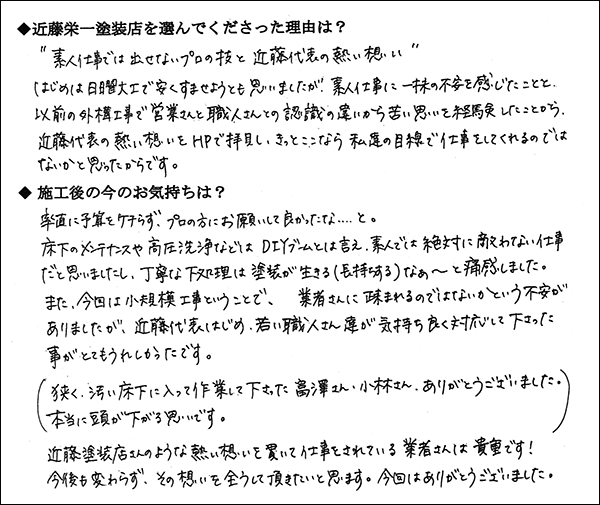 ◆近藤栄一塗装店を選んでくださった理由は？
"素人仕事では出せないプロの技と近藤代表の熱い想い"
はじめは日曜大工で安くすませようとも思いましたが、素人仕事に一抹の不安を感じたことと、
以前の外構工事で営業さんと職人さんとの認識の違いから苦い思いを経験したことから、
近藤代表の熱い想いをHPで拝見し、きっとここなら私達の目線で仕事をしてくれるのでは
ないかと思ったからです。
◆ 施工後の今のお気持ちは？
率直に予算をケチらず、プロの方にお願いして良かったな....と。
床下のメンテナンスや高圧洗浄などは DIYブームとは言え、素人では絶対に敵わない仕事
だと思いましたし、丁寧な下処理は塗装が生きる(長持ちする)なぁ〜と痛感しました。
また、今回は小規模工事ということで、 業者さんに疎まれるのではないかという不安が
ありましたが、近藤代表はじめ、若い職人さん達が気持ち良く対応して下さった
事がとてもうれしかったです。
(狭く、汚い床下に入って作業して下さった髙澤さん・小林さん、ありがとうございました。
本当に頭が下がる思いです。)
近藤塗装店さんのような熱い想いを貫いて仕事をされている業者さんは貴重です!
今後も変わらず、その想いを全うして頂きたいと思います。今回はありがとうございました。